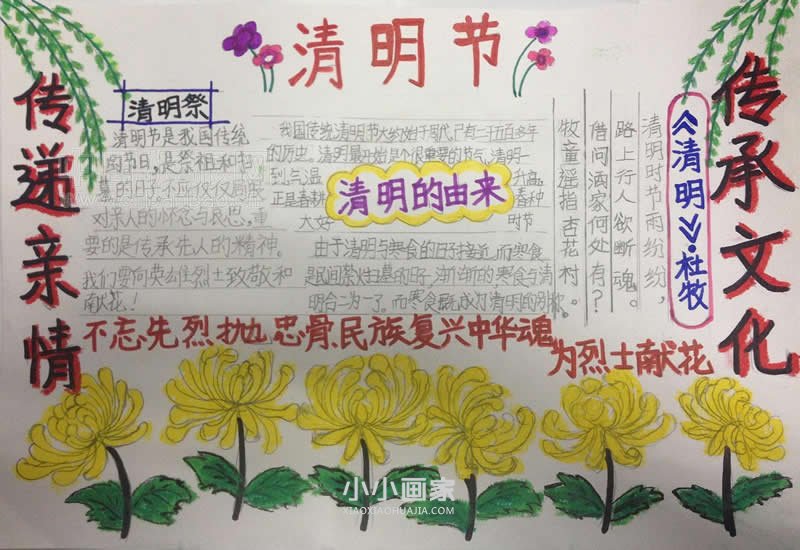 清明节
传递亲情
清明祭
清明节是我国传统
的节日，是祭祖和扫
墓的日子。不应仅仅局限
对亲人的怀念与哀思，重
要的是传承先人的精神。
我们要向英雄烈士致敬和
献花！
我国传统清明节大约始于周代，已有二千五百多年
的历史。清明最开始是个很重要的节气，清明一
到，气温
升高，
正是春耕
春种
大好
时节
清明的由来
由于清明与寒食的日子接近，而寒食
是民间禁火扫墓的日子，渐渐的寒食与清
明合二为一了。而寒食既成为清明的别称。
《清明》·杜牧
清明时节雨纷纷，
路上行人欲断魂。
借问酒家何处有？
牧童遥指杏花村。
传承文化
不忘先烈抛忠骨，民族复兴中华魂
为烈士献花
小小画家
XIAOXIAOHUAJIA.COM